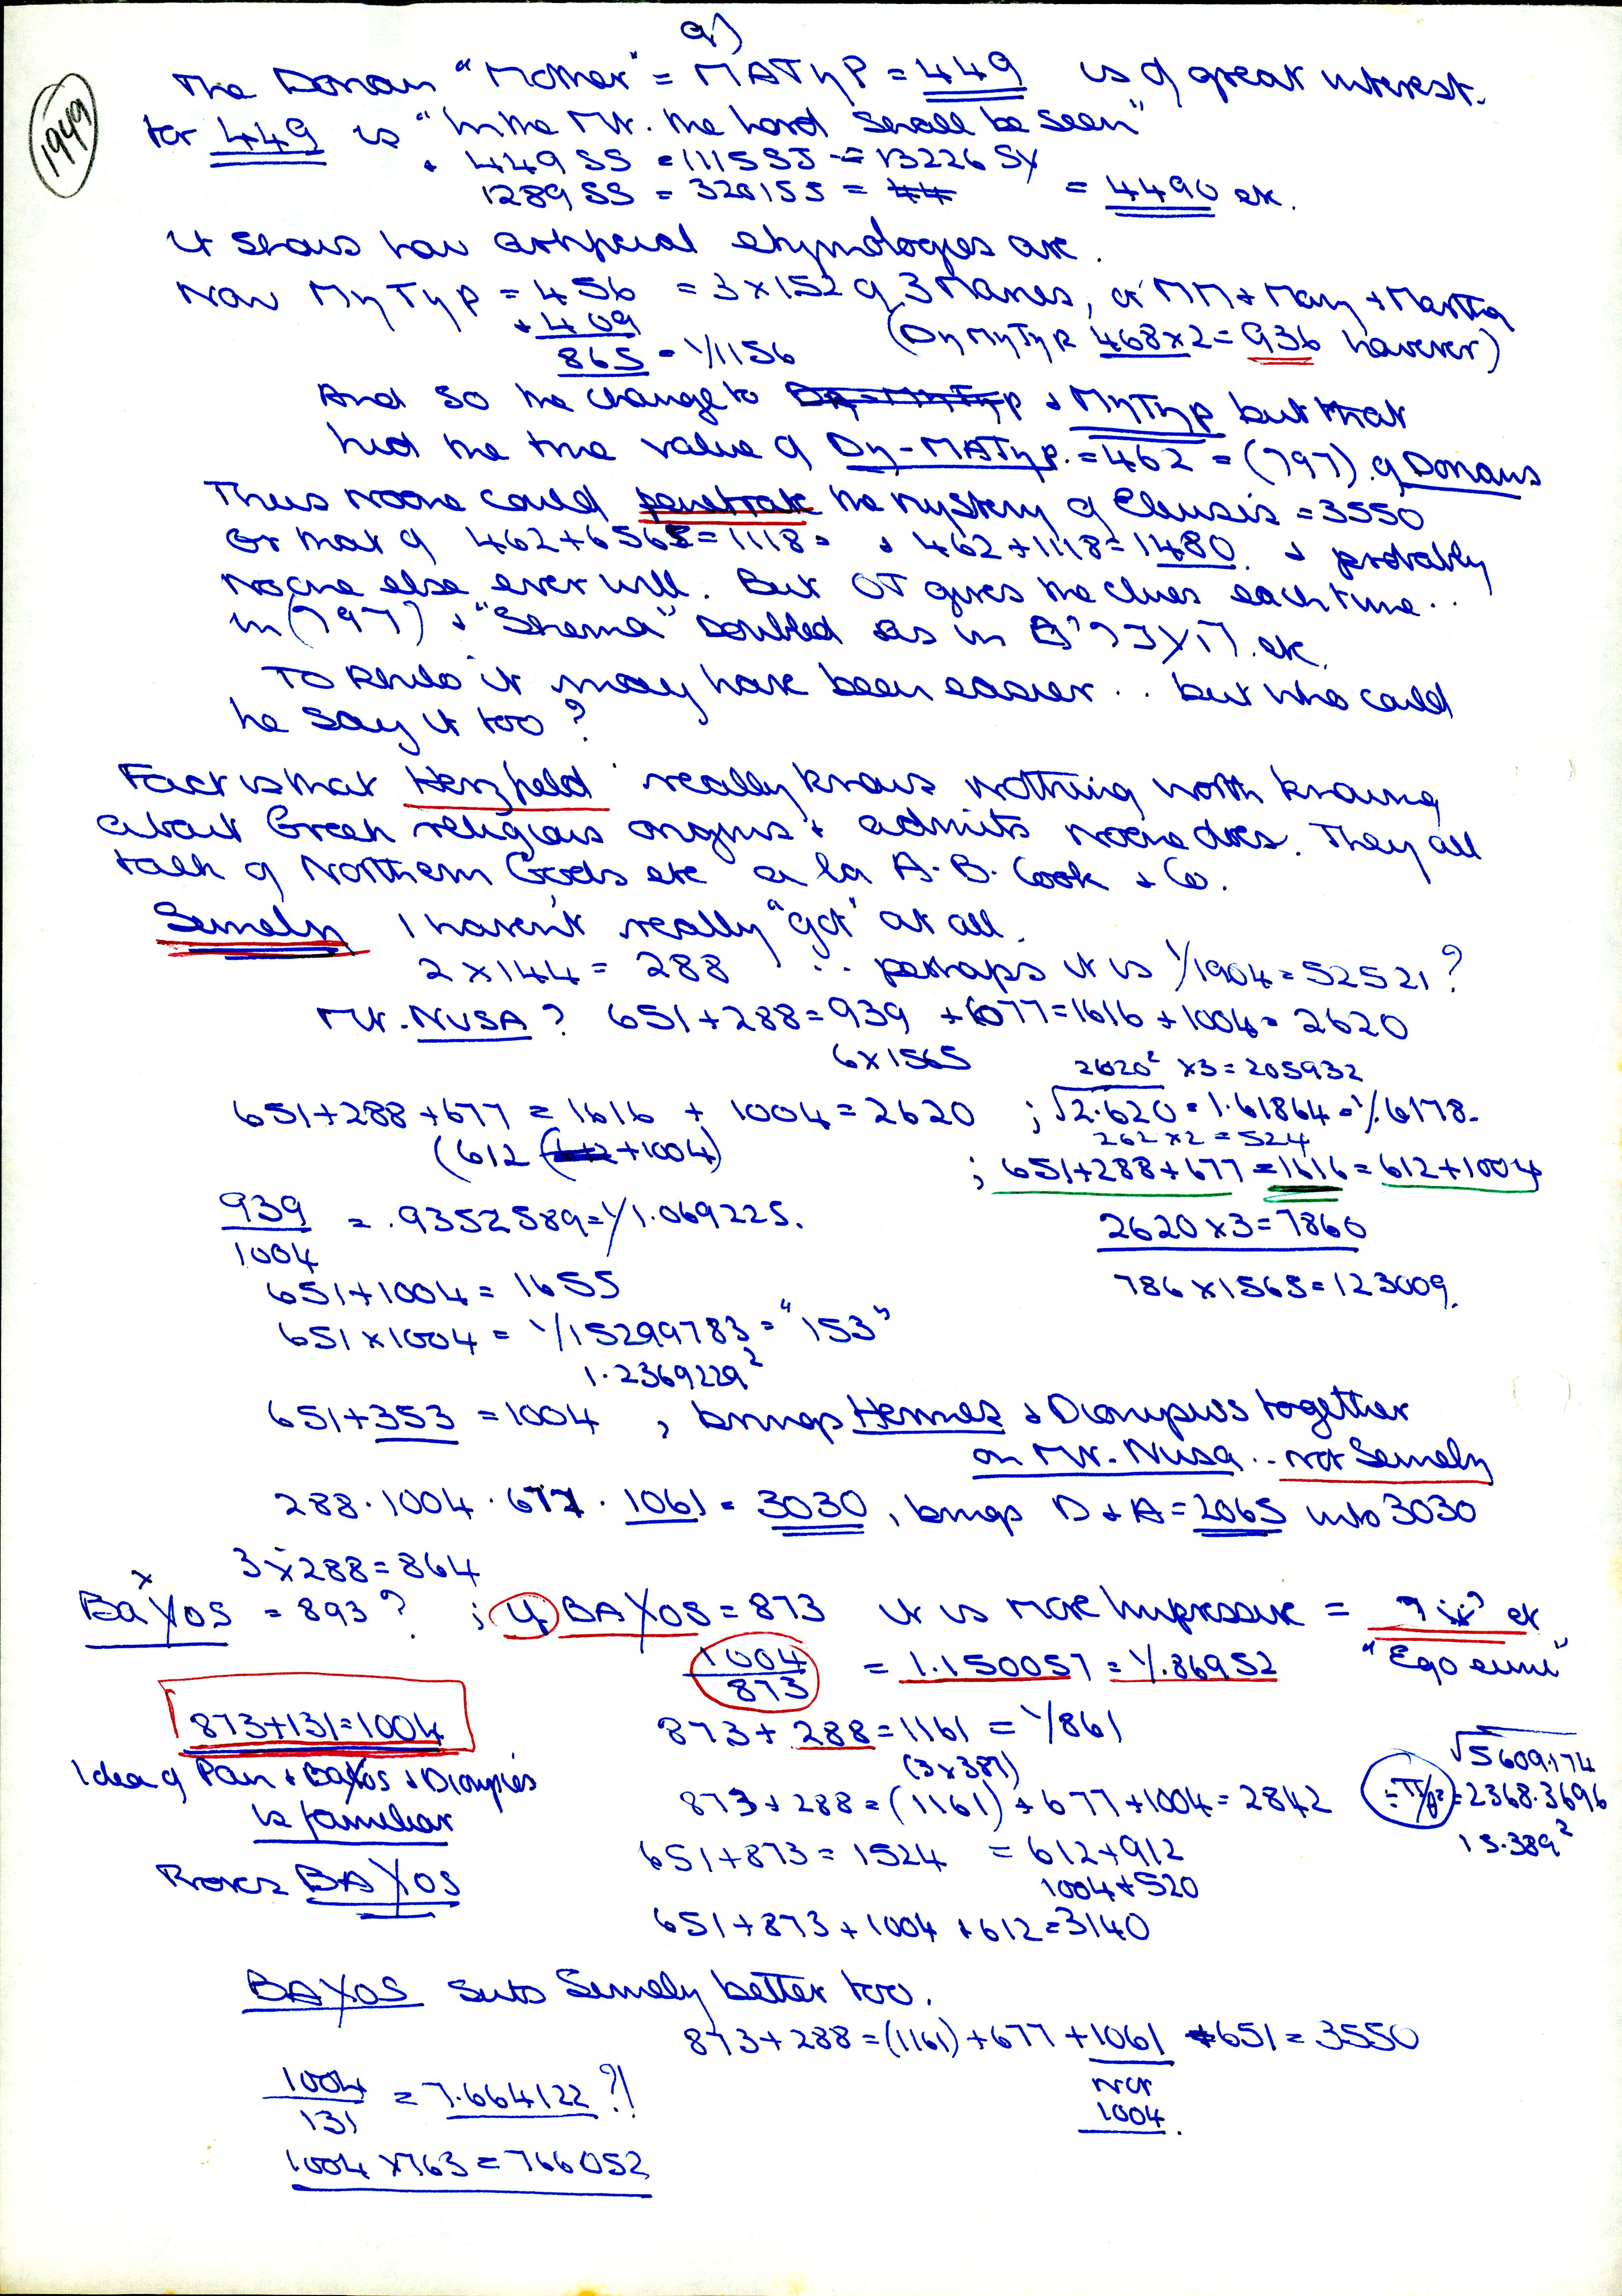 9)
1949
The Dorian "Mother" = MATηP = 449 is of great interest.
for 449 is "In the Mt. the Lord shall be seen"
+ 449 SS = 1115 SJ = 13226 SY
1289 SS = 3201 SS = 44 = 4490 etc.
It shows how artificial etymologies are.
Now MηTηP = 456 = 3 x 152 of 3 Maries, or MM + Mary + Martha
+ 409 (DηMηTηR 468 x 2 = 936 however)
865 = 1/1156
And so the change to Dη-MηTηp + MηTηp but that
hid the true value of Dη-MATηp. = 462 = (797) of Dorians
Thus noone could penetrate the mystery of Eleusis = 3550
or that of 462 + 656 = 1118 + 462 + 1118 = 1480. + probably
noone else ever will. But OT gives the clues each time..
in (797) + "Shema" Doubled as in etc.
To Philo it may have been easier .. but who could
he say it too?
Fact is that Herzfeld really knows nothing worth knowing
about Greek religious origins + admits noone does. They all
talk of Northern Gods etc a la A.B. Cook + Co.
Semelη I haven't really "got" at all.
2 x 144 = 288 .. perhaps it is 1/1904 = 52521?
Mt. NUSA? 651 + 288 = 939 + 677 = 1616 + 1004 = 2620
6 x 1565 2620² x 3 = 205932
651 + 288 + 677 = 1616 + 1004 = 2620 ; √2.620 = 1.61864 = 1/.6178.
(612 + 1004) 262 x 2 = 524
; 651 + 288 + 677 = 1616 = 612 + 1004
939/1004 = .9352589 = 1/1.069225.
2620 x 3 = 7860
651 + 1004 = 1655 786 x 1565 = 123009.
651 x 1004 = 1/15299783 = "153"
1.2369229²
651 + 353 = 1004 , brings Hermes + Dionysus together
on Mt. Nusa .. not Semelη
288 . 1004 . 677 . 1061 = 3030, brings D + A = 2065 into 3030
3 x 288 = 864
BaXos = 893? ; if BAXOS = 873 it is more impressive = etc
1004/873 = 1.150057 = 1/.86952 "Ego eimi"
873 + 131 = 1004 873 + 288 = 1161 = 1/861
(3 x 387)
Idea of Pan + BaXos + Dionysies
is familiar
873 + 288 = (1161) + 677 + 1004 = 2842
√5609174
= 2368.3696
15.389²
651 + 873 = 1524 = 612 + 912
1004 + 520
Proves BAXOS
651 + 873 + 1004 + 612 = 3140
BAXOS suits Semelη better too.
873 + 288 = (1161) + 677 + 1061 + 651 = 3550
not
1004.
1004/131 = 7.664122?!
1004 x 763 = 766052